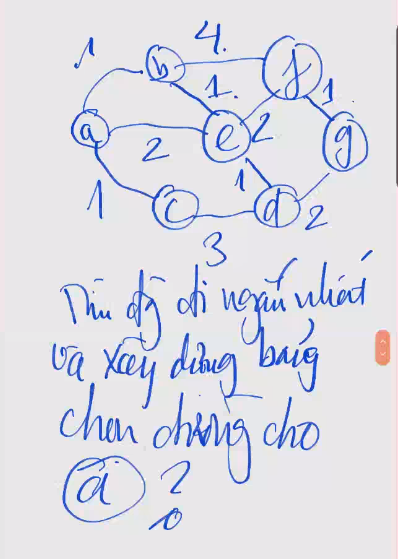 1
4.
b
f
1.
1
a
e
2
g
2
1
1
c
d
2
3
Tìm đg đi ngắn nhất
và xây dựng bảng
chọn đường cho
a ?